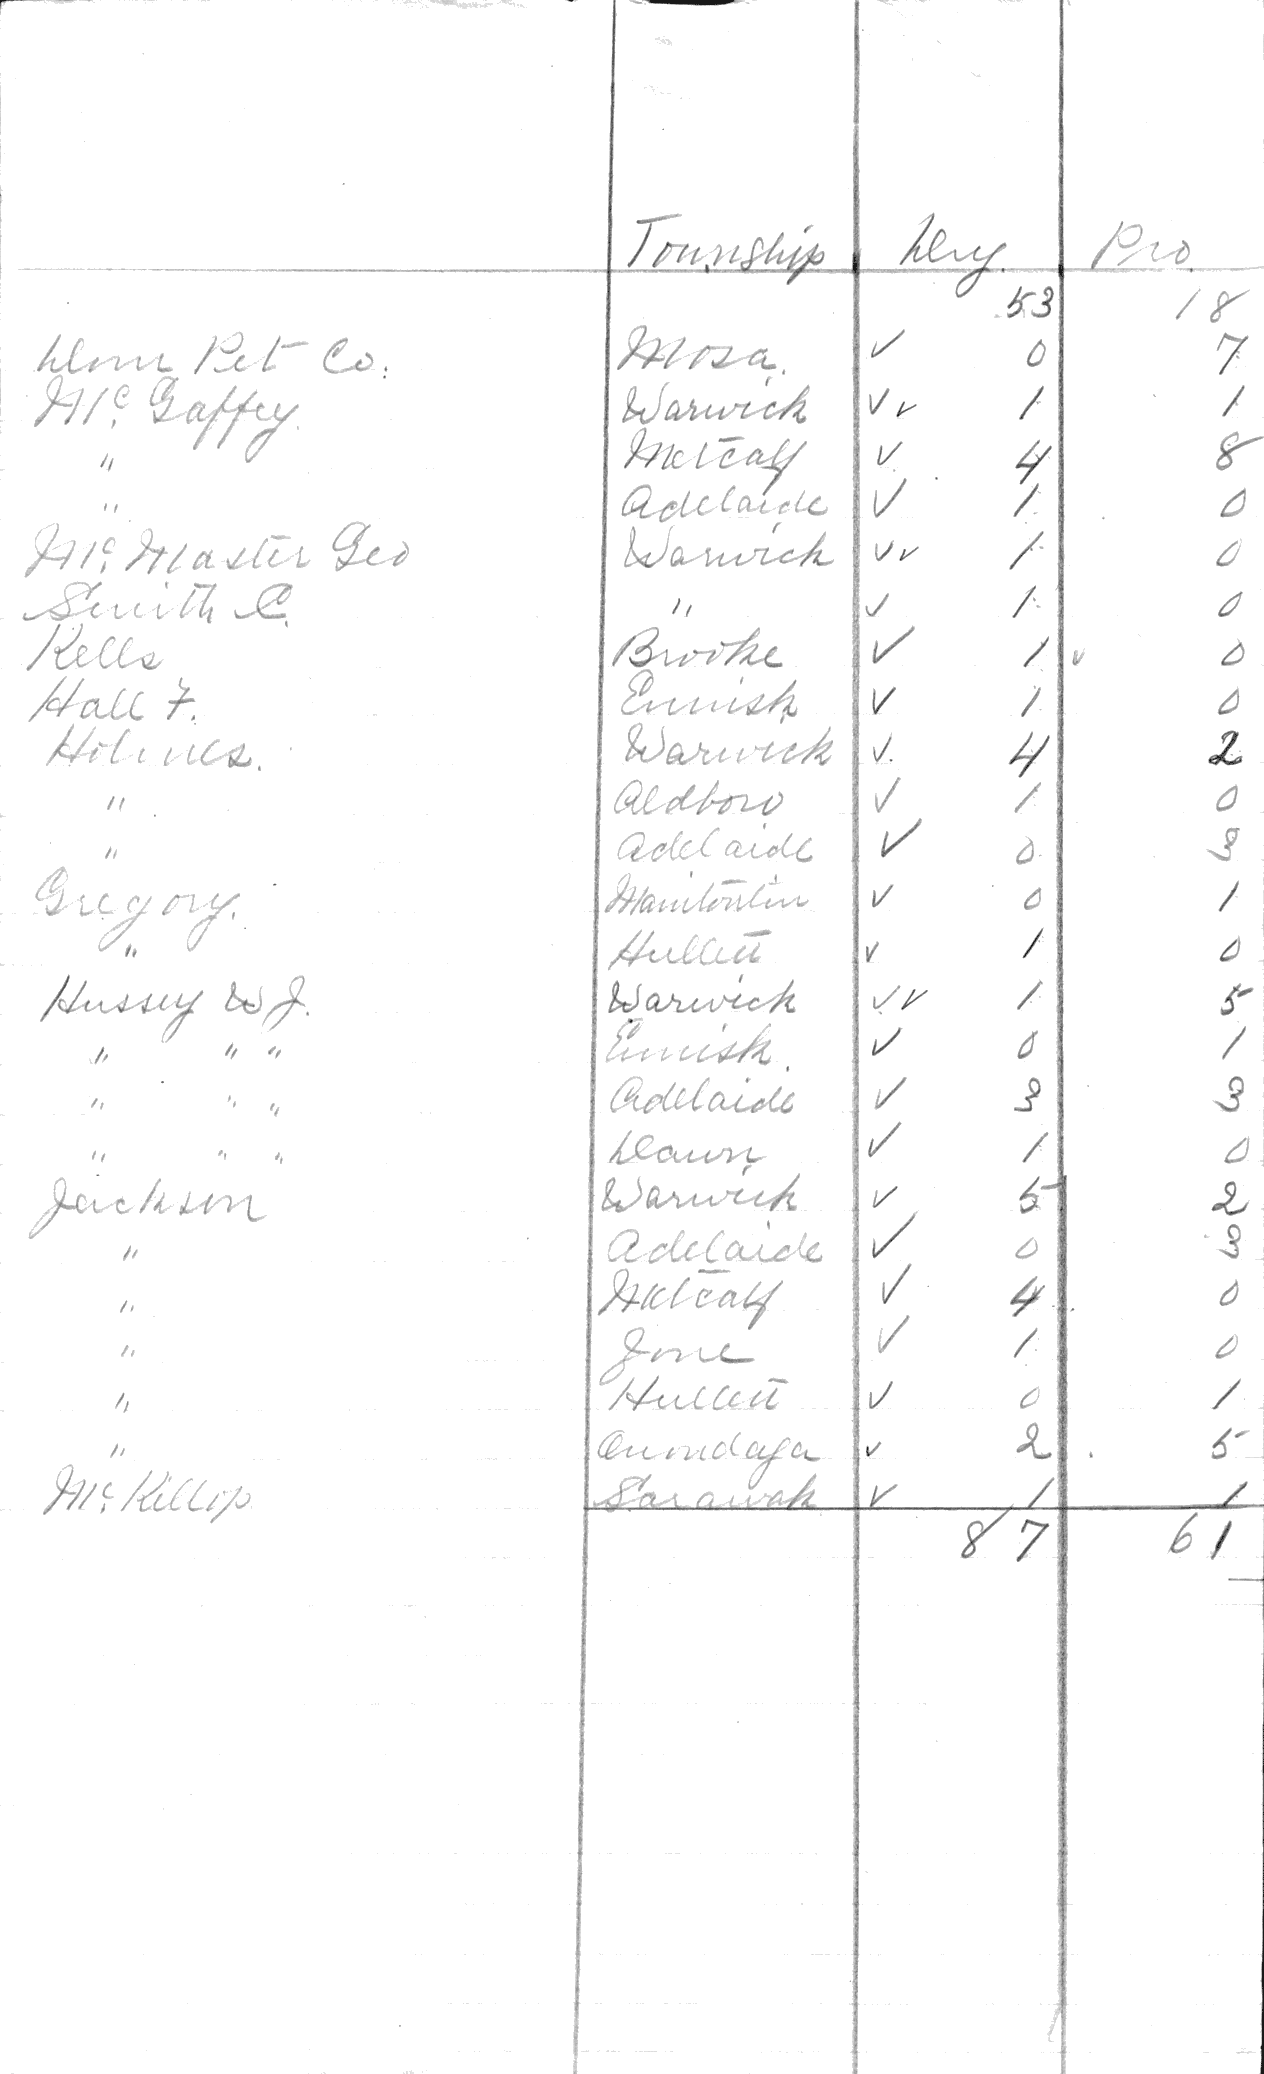 Township Dry. Pro.
53 18
Dom Pet Co. Mosa. ✓ 0 7
Mc. Gaffey. Warwick ✓✓ 1 1
" Metcalf ✓ 4 8
" Adelaide ✓ 1 0
Mc. Master Geo Warwick ✓✓ 1 0
Smith C. " ✓ 1 0
Kells Brooke ✓ 1 ✓ 0
Hall F. Ennisk ✓ 1 0
Holmes. Warwick ✓ 4 2
" Aldboro ✓ 1 0
" Adelaide ✓ 0 3
Gregory. Manitoulin ✓ 0 1
" Hullett ✓ 1 0
Hussey W J. Warwick ✓✓ 1 5
" " " Ennisk. ✓ 0 1
" " " Adelaide ✓ 3 3
" " " Dawn ✓ 1 0
Jackson Warwick ✓ 5 2
" Adelaide ✓ 0 3
" Metcalf ✓ 4 0
" Zone ✓ 1 0
" Hullett ✓ 0 1
" Onondaga ✓ 2 5
Mc. Killop Sarawak ✓ 1 1
87 61